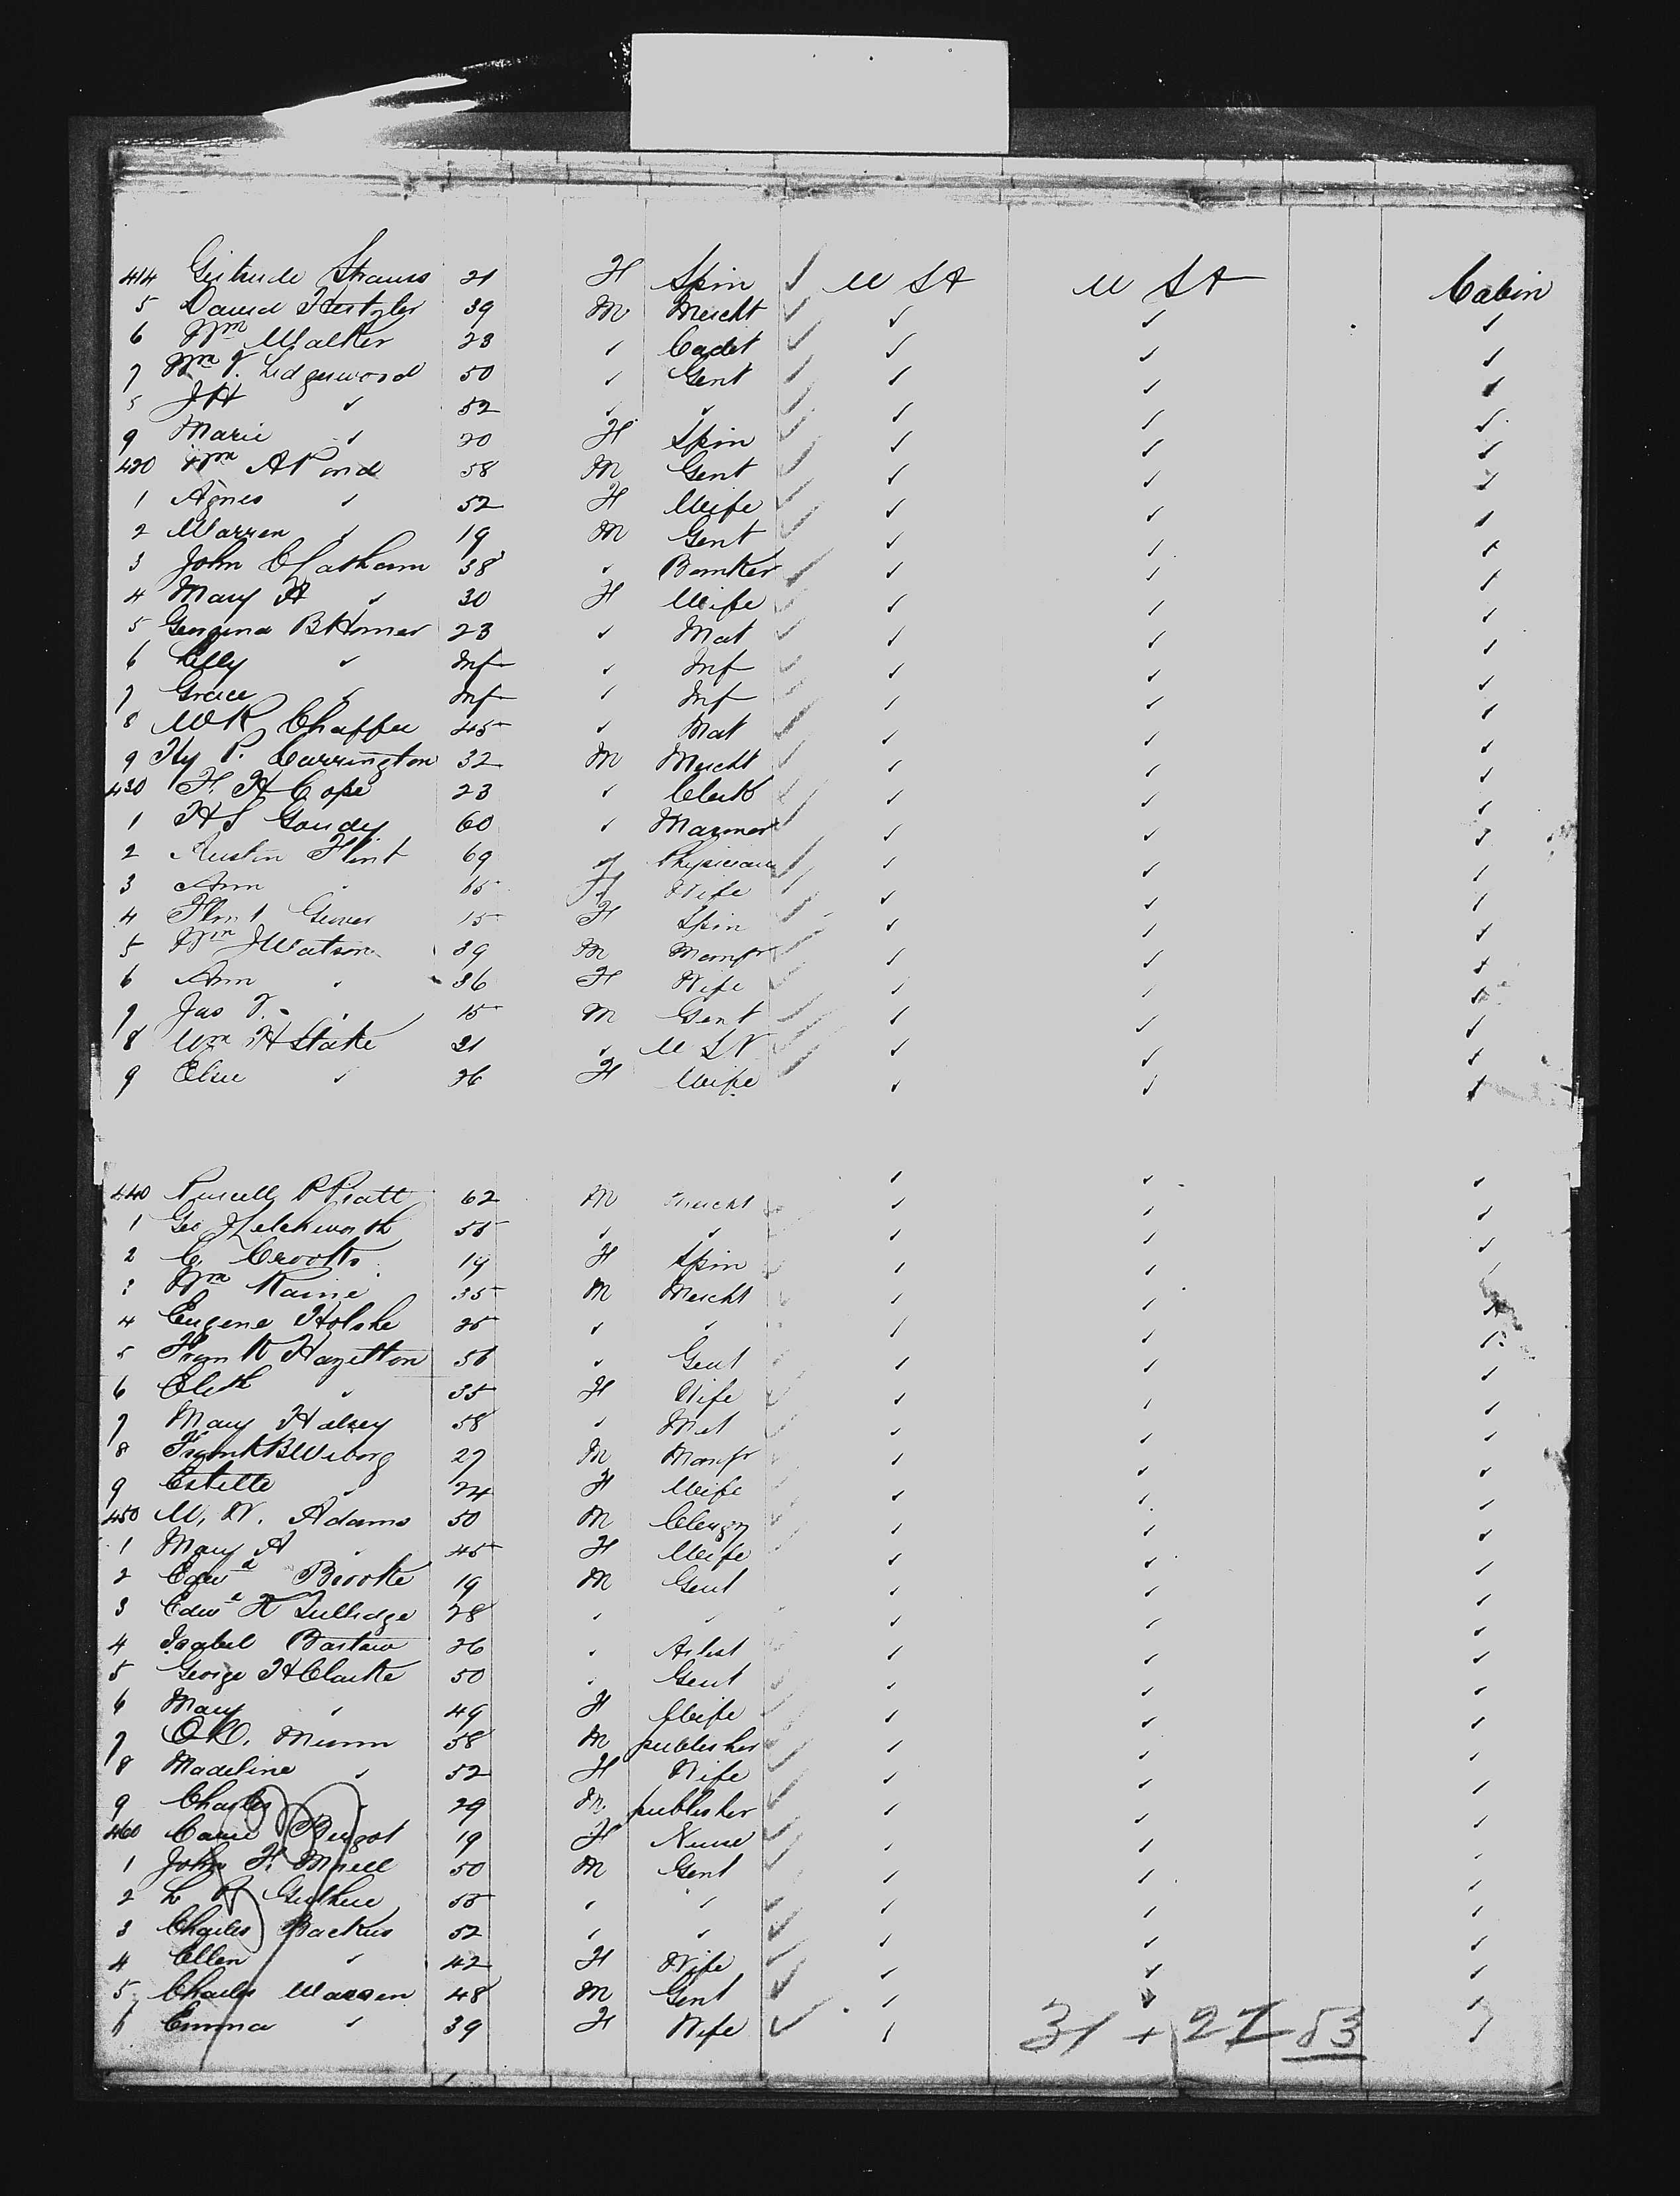 414 Gertrude Strauss 21 F Spin ✓ U St U St Cabin
5 David Hertzler 39 M Mercht ✓ ✓ ✓ ✓
6 Wm Walker 23 ✓ Cadet ✓ ✓ ✓ ✓
7 Wm V. Lidgerwood 50 ✓ Gent ✓ ✓ ✓ ✓
8 JH ✓ 52 ✓ ✓ ✓ ✓ ✓ ✓
9 Marie ✓ 20 F Spin ✓ ✓ ✓ ✓
420 Wm A Pond 58 M Gent ✓ ✓ ✓ ✓
1 Agnes ✓ 52 F Wife ✓ ✓ ✓ ✓
2 Warren ✓ 19 M Gent ✓ ✓ ✓ ✓
3 John C Latham 38 ✓ Banker ✓ ✓ ✓ ✓
4 Mary H ✓ 30 F Wife ✓ ✓ ✓ ✓
5 Georgina B Homer 23 ✓ Mat ✓ ✓ ✓ ✓
6 ✓ Inf ✓ Inf ✓ ✓ ✓ ✓
7 Grace ✓ Inf ✓ Inf ✓ ✓ ✓ ✓
8 W R Chaffee 45 ✓ Mat ✓ ✓ ✓ ✓
9 Hy P. Carrington 32 M Mercht ✓ ✓ ✓ ✓
430 F. H Cope 23 ✓ Clerk ✓ ✓ ✓ ✓
1 H S Goudy 60 ✓ Mariner ✓ ✓ ✓ ✓
2 Austin Flint 69 ✓ Physician ✓ ✓ ✓ ✓
3 Ann 65 F Wife ✓ ✓ ✓ ✓
4 15 F Spin ✓ ✓ ✓ ✓
5 Wm J Watson 39 M Manfr ✓ ✓ ✓ ✓
6 Ann 36 F Wife ✓ ✓ ✓ ✓
7 Jas V. 15 M Gent ✓ ✓ ✓ ✓
8 Wm H Stake 21 ✓ U S N ✓ ✓ ✓ ✓
9 Elsie ✓ 26 F Wife ✓ ✓ ✓
440 Pursell R Pratt 62 M Mercht ✓ ✓ ✓ ✓
1 Geo J Letchworth 55 ✓ ✓ ✓ ✓ ✓
2 C. Crooks 19 F Spin ✓ ✓ ✓
3 Wm Raine 35 M Mercht ✓ ✓ ✓
4 Eugene Holske 25 ✓ ✓ ✓ ✓ ✓
5 Frank Hazelton 56 ✓ Gent ✓ ✓ ✓
6 Elith 35 F Wife ✓ ✓ ✓ ✓
7 Mary Halsey 58 ✓ Mat ✓ ✓ ✓ ✓
8 Frank B Wiborg 27 M Manfr ✓ ✓ ✓ ✓
9 Estelle ✓ 24 F Wife ✓ ✓ ✓ ✓
450 W. W. Adams 50 M Clergy ✓ ✓ ✓ ✓
1 Mary A 45 F Wife ✓ ✓ ✓ ✓
2 Edwd Brooke 19 M Gent ✓ ✓ ✓
3 Edwd K Tullidge 28 ✓ ✓ ✓ ✓ ✓
4 Isabel Barstow 26 ✓ Artist ✓ ✓ ✓
5 George H Clarke 50 ✓ Gent ✓ ✓ ✓
6 Mary ✓ 49 F Wife ✓ ✓ ✓ ✓
7 O D. Munn 58 M publisher ✓ ✓ ✓ ✓
8 Madeline ✓ 52 F Wife ✓ ✓ ✓ ✓
9 Charles 29 M. publisher ✓ ✓ ✓ ✓
460 19 F Nurse ✓ ✓ ✓ ✓
1 John F. 50 M Gent ✓ ✓ ✓ ✓
2 L P Guthrie 55 ✓ ✓ ✓ ✓ ✓ ✓
3 Charles Backus 52 ✓ ✓ ✓ ✓ ✓ ✓
4 Ellen ✓ 42 F Wife ✓ ✓ ✓ ✓
5 Charles Warren 48 M Gent ✓ ✓ ✓ ✓
6 Emma ✓ 39 F Wife ✓ ✓ 31 + 22 53 ✓